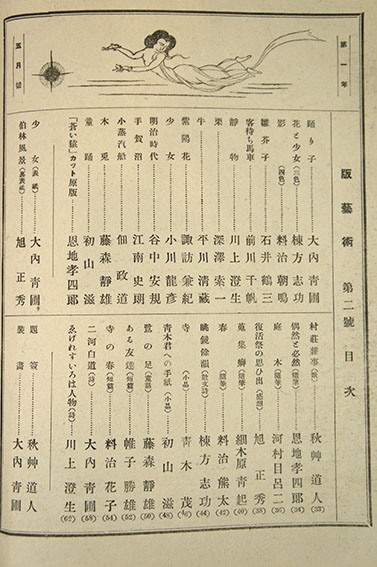 第一年
五月號
版藝術 第二號 目次
踊り子 大內青圃
花と少女(三色) 棟方志功
影(四色) 料治朝鳴
雛芥子 石井鶴三
客待ち馬車 前川千帆
靜物 川上澄生
栗 深澤索一
牛 平川淸藏
紫陽花 諏訪兼紀
少女 小川龍彥
明治時代 谷中安規
手賀沼 江南史朗
小蒸汽船 佃政道
木兎 藤森靜雄
童踊 初山滋
「蒼い猿」カット原版 恩地孝四郞
少女(表紙) 大內青圃
伯林風景(裏表紙) 旭正秀
村莊雜事(歌) 秋艸道人(33)
偶然と必然(隨筆) 恩地孝四郞(34)
庭木(隨筆) 河村目呂二(36)
復活祭の思ひ出(感想) 旭正秀(38)
蒐集癖(隨筆) 細木原靑起(40)
春(隨筆) 料治熊太(42)
眺鏡餘韻(散文詩) 棟方志功(44)
寺(小品) 青木茂(46)
青木君への手紙(小品) 初山滋(48)
鷺の足(童話) 藤森靜雄(50)
ある友達(短篇) 帷子勝雄(52)
寺の春(短篇) 料治花子(54)
二河白道(詩) 大內青圃(58)
ゑげれすいろは人物(詩) 川上澄生(62)
題簽 秋艸道人
裝畫 大內青圃